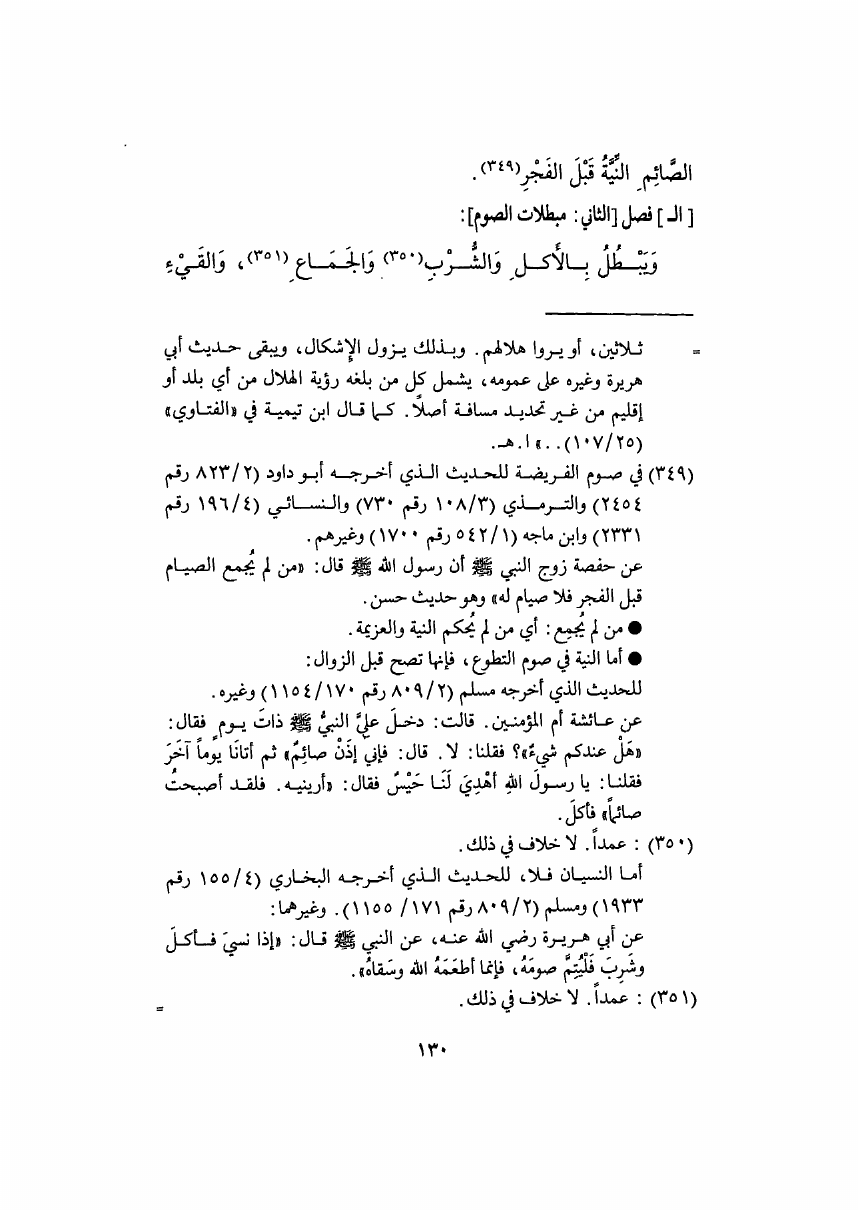 الصَّائِمِ النِّيَّةُ قَبْلَ الفَجْرِ(٣٤٩).
[ الـ ] فصل [الثاني: مبطلات الصوم]:
وَيَبْـطُلُ بِـالأَكـلِ وَالشُّـرْبِ(٣٥٠) وَالجَـمَـاعِ(٣٥١)، وَالقَـيْءِ
= ثـلاثين، أو يـروا هلالهم. وبـذلك يـزول الإشكال، ويبقى حـديث أبي
هريرة وغيره على عمومه، يشمل كل من بلغه رؤية الهلال من أي بلد أو
إقليم من غـير تحديـد مسافـة أصلاً. كـما قـال ابن تيميـة في «الفتـاوي»
(١٠٧/٢٥)..» ا.هـ.
(٣٤٩) في صـوم الفـريضـة للحـديث الـذي أخـرجـه أبـو داود (٨٢٣/٢ رقم
٢٤٥٤) والتـرمـذي (١٠٨/٣ رقم ٧٣٠) والـنسـائـي (١٩٦/٤ رقم
٢٣٣١) وابن ماجه (٥٤٢/١ رقم ١٧٠٠) وغيرهم.
عن حفصة زوج النبي ﷺ أن رسول الله ﷺ قال: «من لم يُجمع الصيـام
قبل الفجر فلا صيام له» وهو حديث حسن.
● من لم يُجمِع: أي من لم يُحكم النية والعزيمة.
● أما النية في صوم التطوع، فإنها تصح قبل الزوال:
للحديث الذي أخرجه مسلم (٨٠٩/٢ رقم ١١٥٤/١٧٠) وغيره.
عن عـائشة أم المؤمنـين. قالت: دخـلَ عليَّ النبيُّ ﷺ ذاتَ يـومٍ فقال:
«هَلْ عندكم شيءٌ»؟ فقلنا: لا. قال: فإني إذَنْ صائِمٌ» ثم أتانَا يَوْماً آخَرَ
فقلنـا: يا رسولَ اللهِ أهْدِيَ لَنَـا حَيْسٌ فقال: «أرينيـه. فلقـد أصبحتُ
صائماً» فأكلَ.
(٣٥٠) : عمداً. لا خلاف في ذلك.
أمـا النسيـان فـلا، للحـديث الـذي أخـرجـه البخـاري (١٥٥/٤ رقم
١٩٣٣) ومسلم (٨٠٩/٢ رقم ١٧١/ ١١٥٥). وغيرهما:
عن أبي هـريـرة رضي الله عنـه، عن النبي ﷺ قـال: «إذا نسيَ فـأكـلَ
وشَرِبَ فَلْيُتِمَّ صومَهُ، فإنما أطعَمَهُ الله وسَقاهُ».
(٣٥١) : عمداً. لا خلاف في ذلك. =
١٣٠